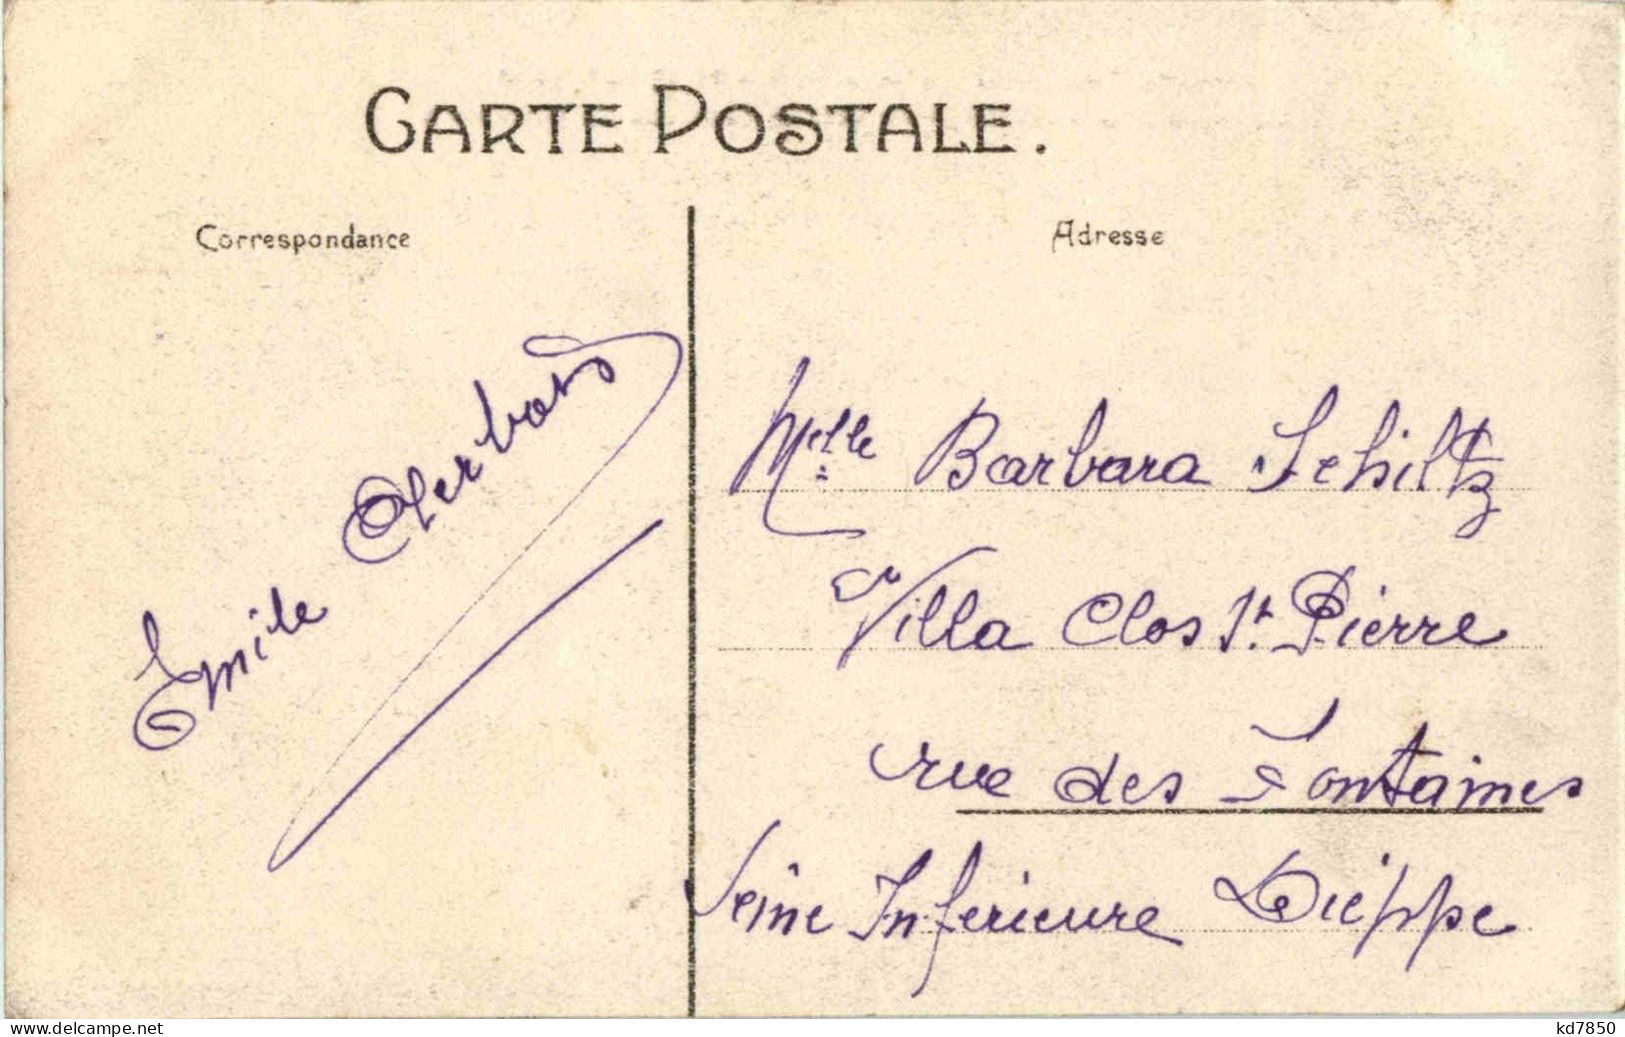 CARTE POSTALE.
Correspondance
Adresse
Emile
Melle Barbara Schiltz
Villa Clos St. Pierre
rue des Fontaines
Seine Inferieure Dieppe
www.delcampe.net
kd7850